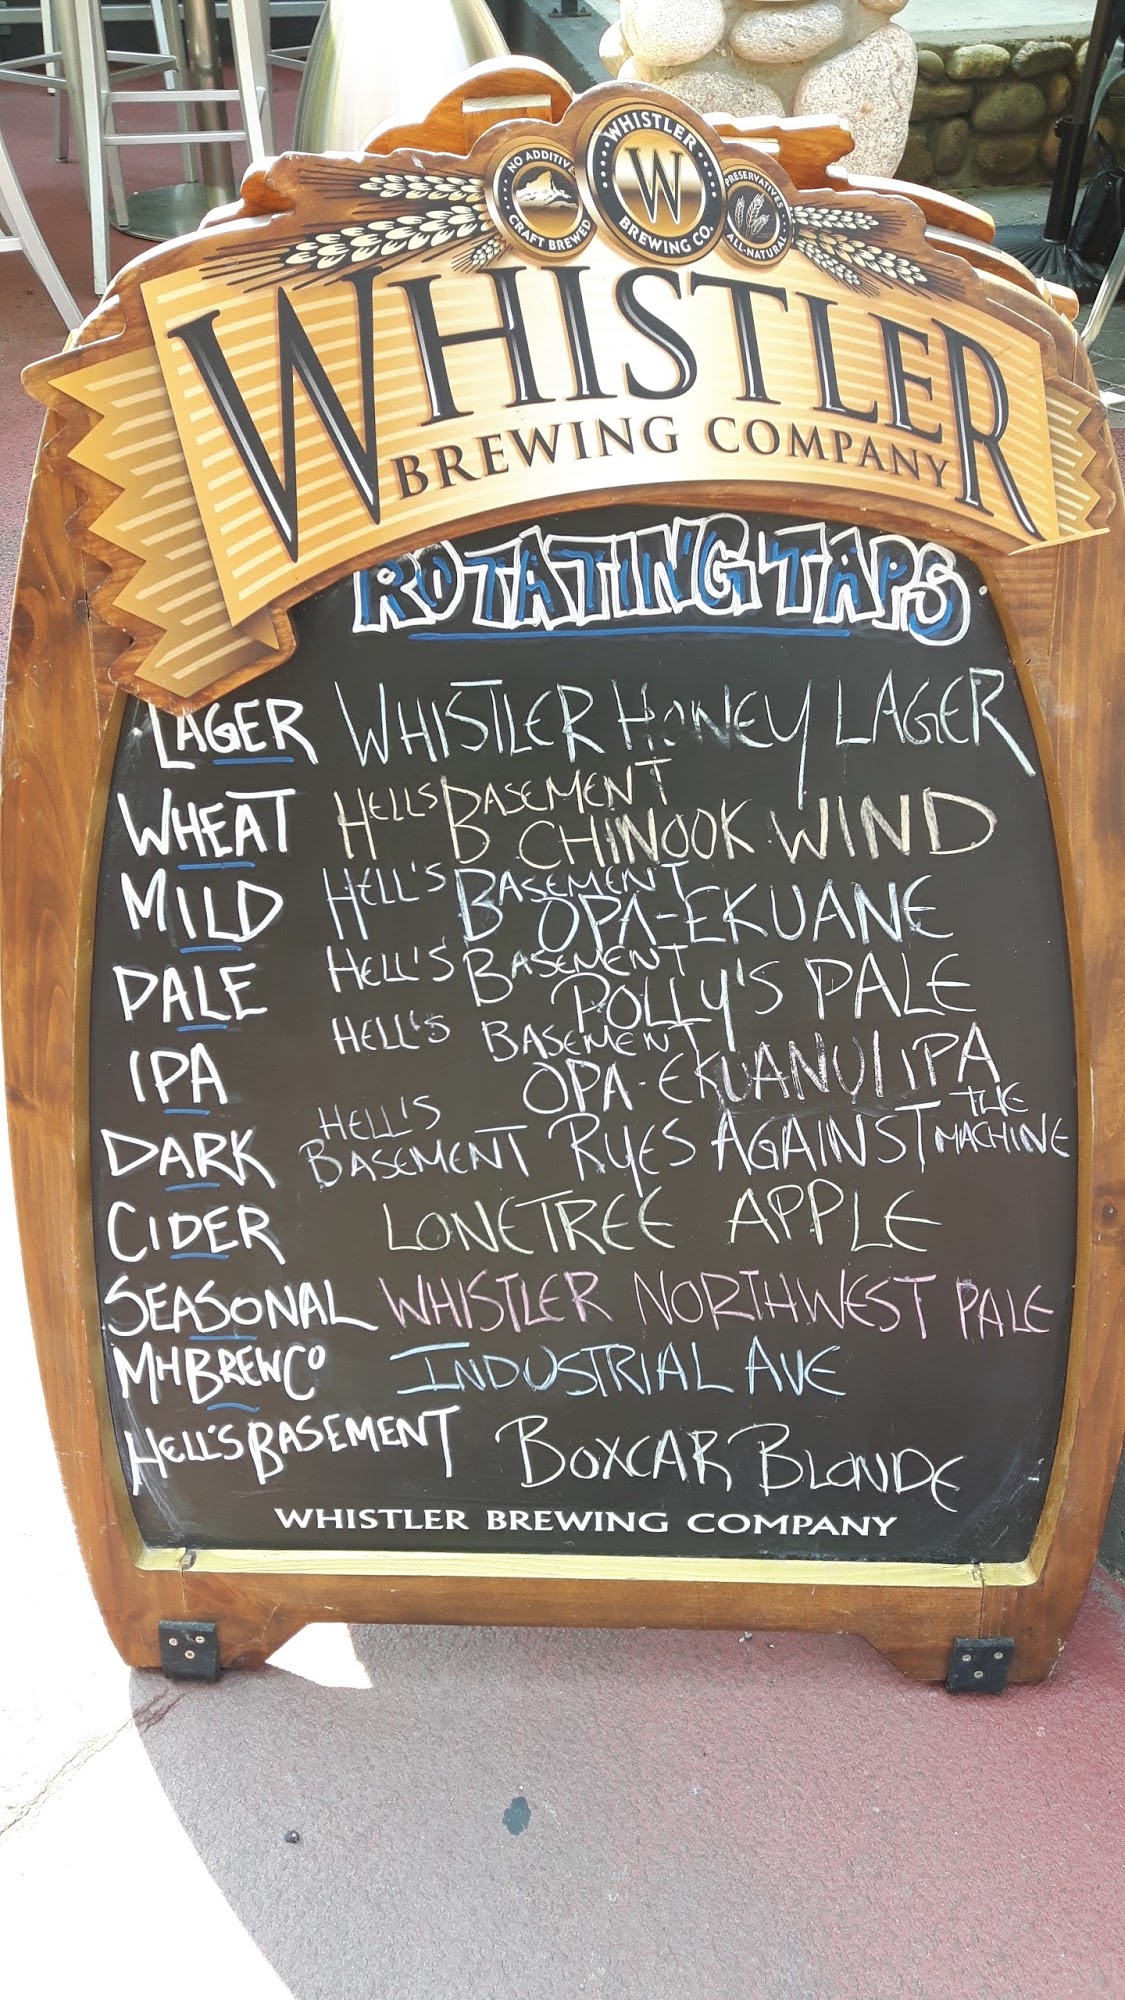 NO ADDITIVE
CRAFT BREWED
WHISTLER
W
BREWING CO.
PRESERVATIVES
ALL-NATURAL
WHISTLER
BREWING COMPANY
ROTATING TAPS
LAGER WHISTLER HONEY LAGER
WHEAT HELLS BASEMENT B CHINOOK WIND
MILD HELL'S BASEMENT B OPA-EKUANE
PALE HELL'S BASEMENT POLLY'S PALE
IPA HELL'S BASEMENT OPA-EKUANU IPA
DARK HELL'S BASEMENT RYES AGAINST THE MACHINE
CIDER LONETREE APPLE
SEASONAL WHISTLER NORTHWEST PALE
MHBREWCO INDUSTRIAL AVE
HELL'S BASEMENT BOXCAR BLONDE
WHISTLER BREWING COMPANY